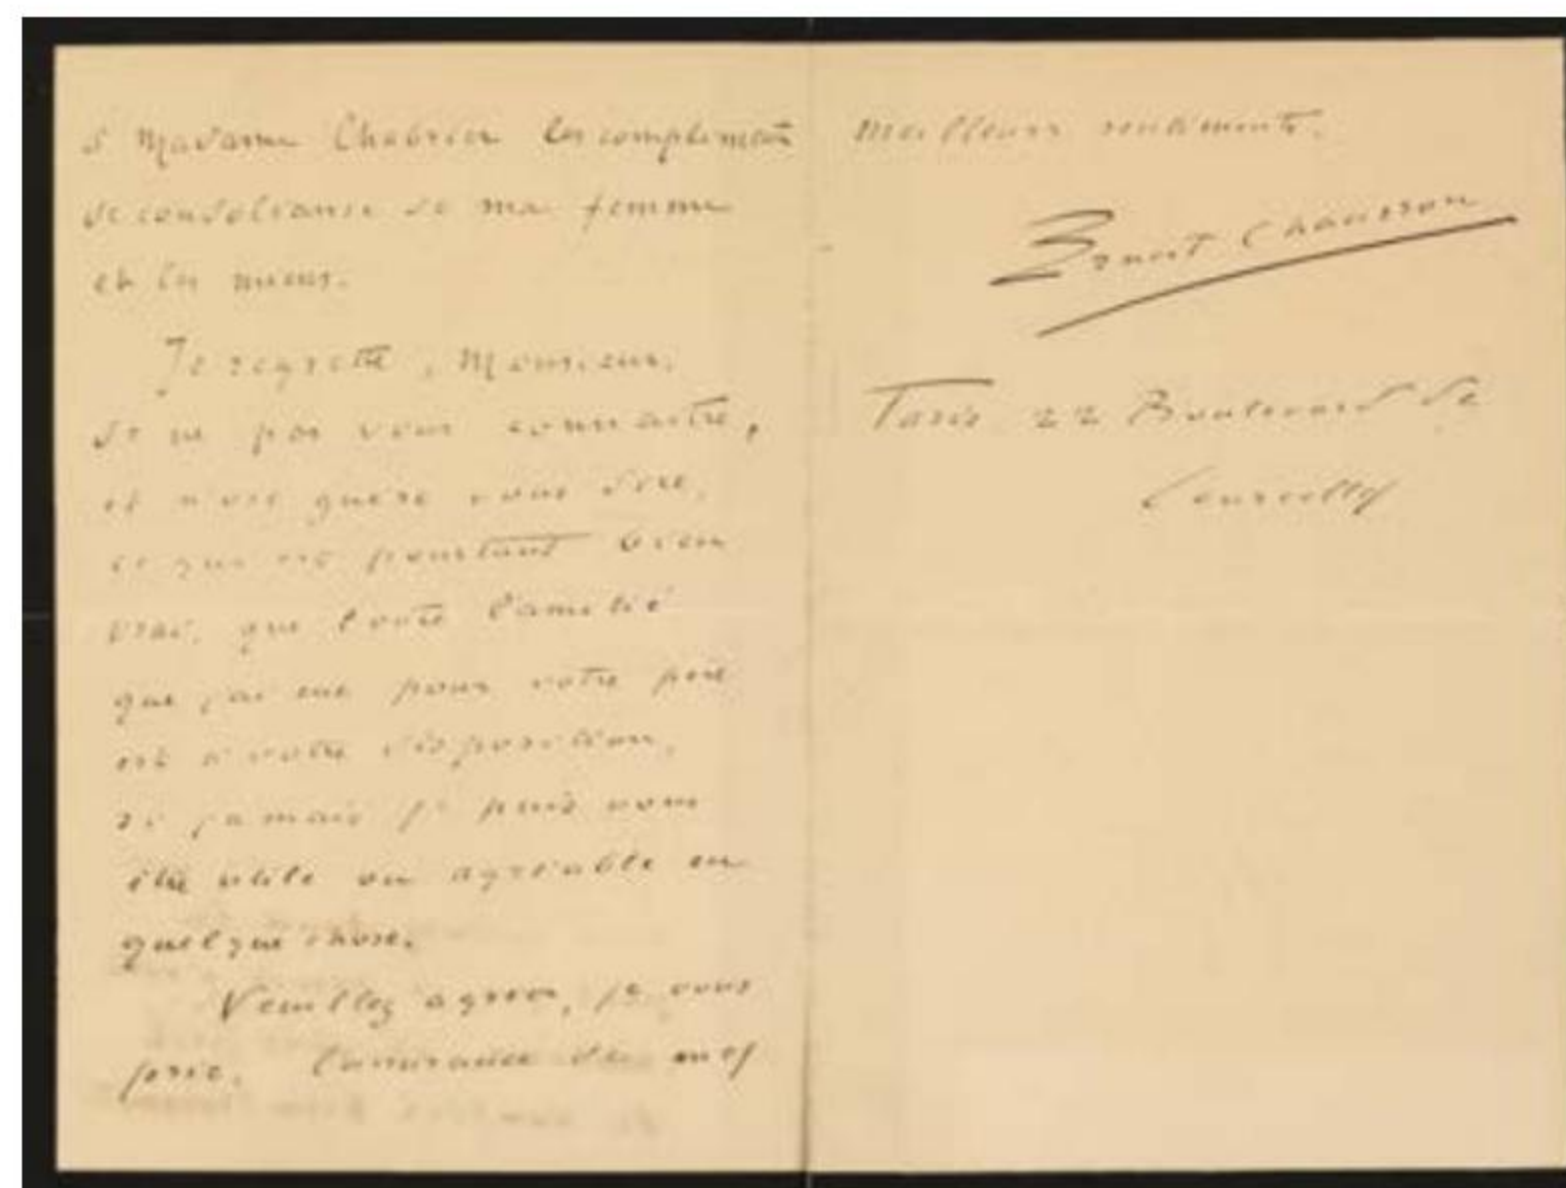 à Madame Chabrier les compliments
de condoléances de ma femme
et les miens.
Je regrette, Monsieur,
de ne pas vous connaitre,
et n'ose guère vous dire,
ce qui est pourtant bien
vrai, que toute l'amitié
que j'ai eue pour votre père
est à votre disposition,
si jamais je puis vous
être utile ou agréable en
quelque chose.
Veuillez agréer, je vous
prie, l'assurance de mes
meilleurs sentiments.
Ernest Chausson
Paris 22 Boulevard de
Courcelles